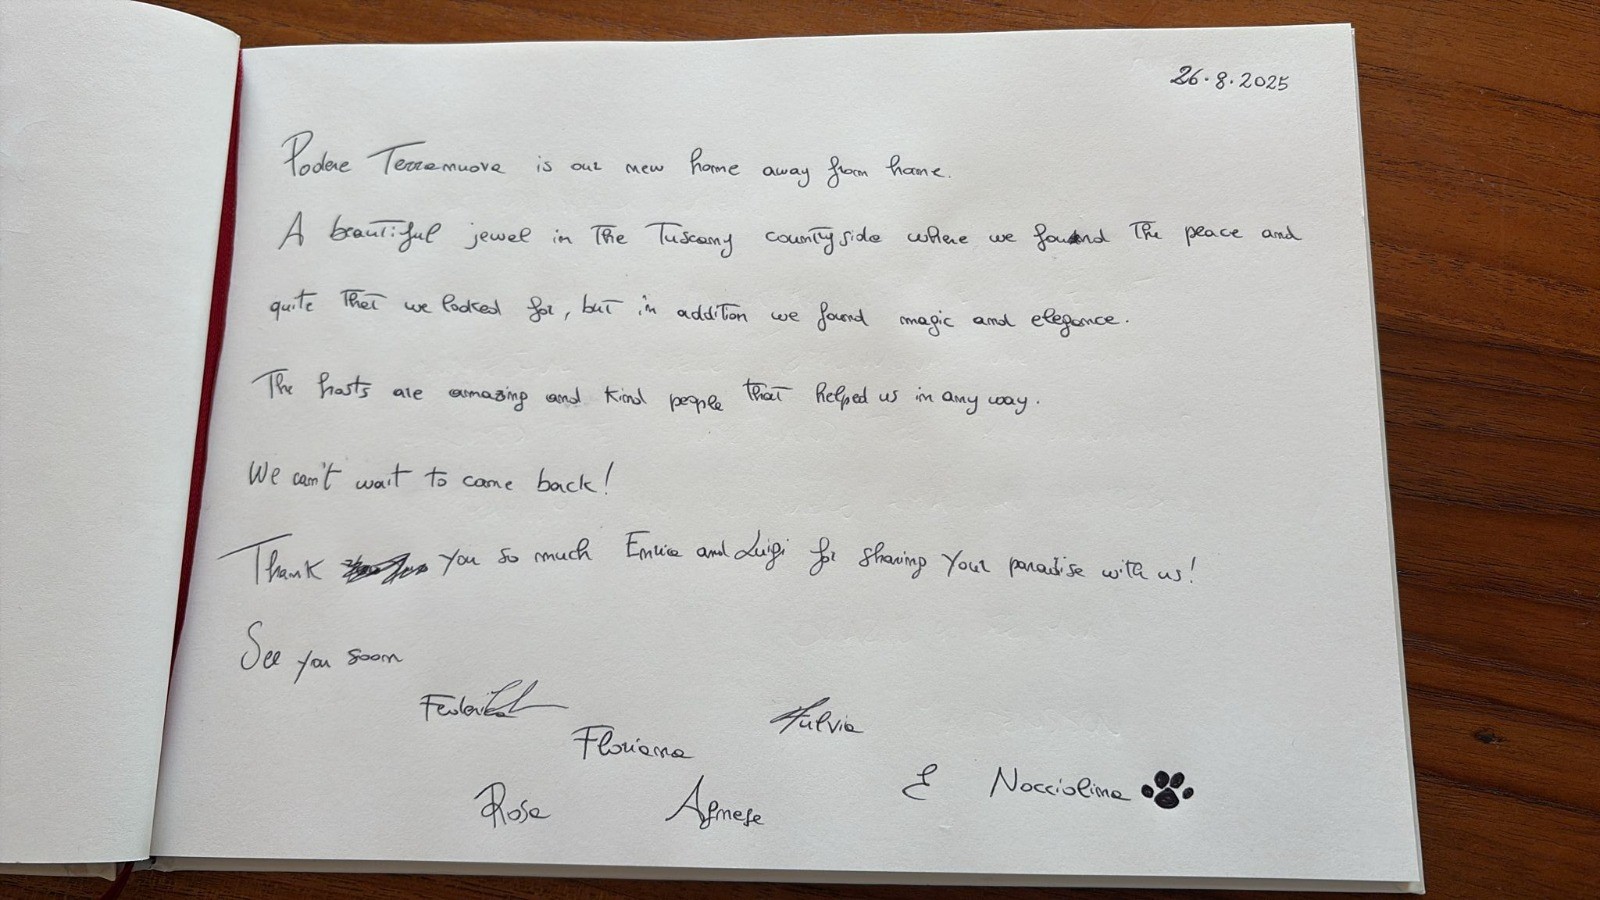 26.8.2025
Podere Terramuova is our new home away from home.
A beautiful jewel in the Tuscany countyside where we found the peace and
quite that we looked for, but in addition we found magic and elegance.
The hosts are amazing and kind people that helped us in any way.
We can't wait to come back!
Thank you so much Enrica and Luigi for sharing your paradise with us!
See you soon
Federica
Fulvia
Floriana
E Nocciolina
Rosa Agnese